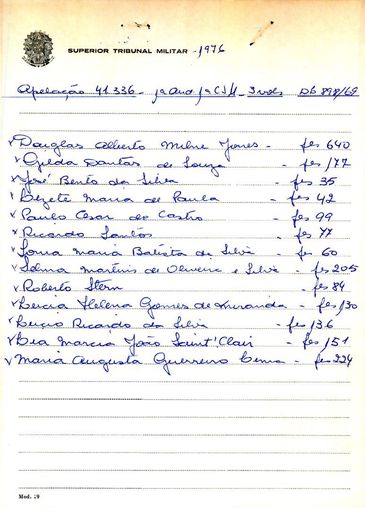 SUPERIOR TRIBUNAL MILITAR -1976
Apelação 41.336 - 1ª Aud 1ª CJM - 3 vols DB 898/69
Douglas Alberto Milne Jones - fls 640
Gilda Dantas de Souza - fls 177
José Bento da Silva - fls 35
Elizete Maria de Paula - fls 42
Paulo Cesar de Castro - fls 99
Ricardo Santos - fls 77
Sonia Maria Batista da Silva - fls 60
Selma Martins de Oliveira e Silva - fls 205
Roberto Stern - fls 84
Lercia Helena Gomes de Miranda - fls 130
Lucio Ricardo da Silva - fls 136
Lea Marcia João Saint'Clair - fls 151
Maria Augusta Guerreiro Lima - fls 224
Mod. 29